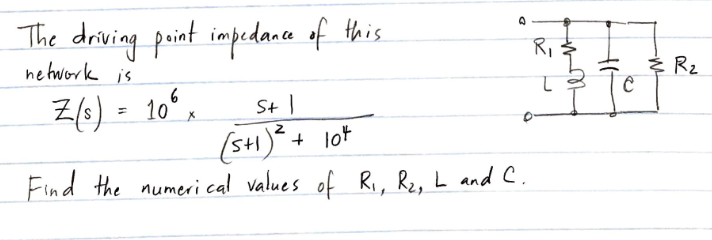 The driving point impedance of this
network is
Z(s) = 10⁶ × (s+1) / ((s+1)² + 10⁴)
Find the numerical values of R₁, R₂, L and C.
R₁
L
C
R₂